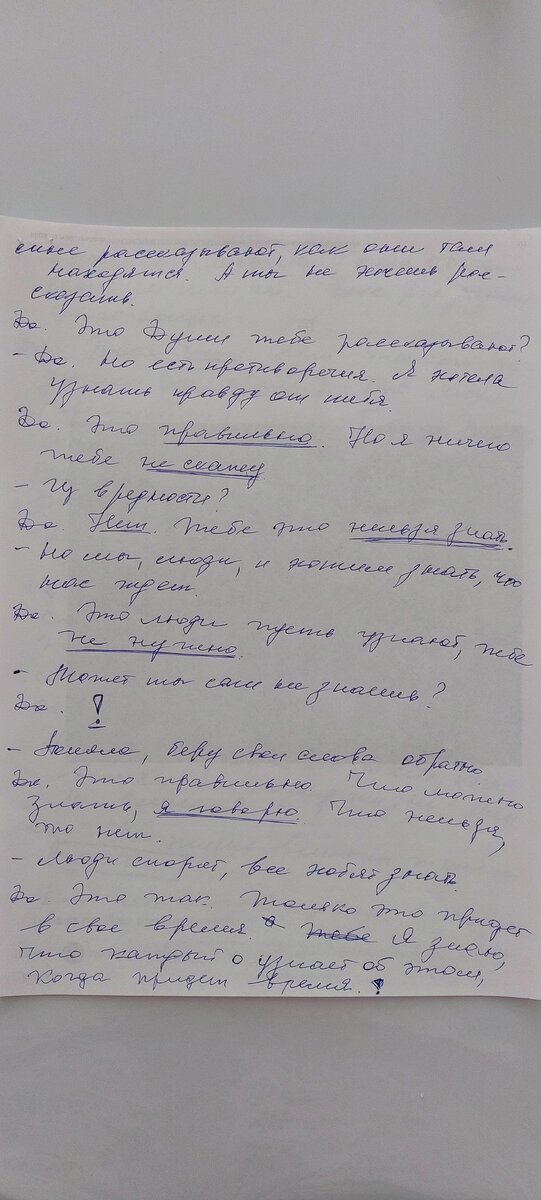 мне рассказывают, как они там
находятся. А ты не хочешь рас-
сказать.
Дх. Это Души тебе рассказывают?
- Да. Но есть противоречия. Я хотела
узнать правду от тебя.
Дх. Это правильно. Но я ничего
тебе не скажу
- Из вредности?
Дх. Нет. Тебе это нельзя знать.
- Но мы, люди, и хотим знать, что
нас ждет.
Дх. Это люди пусть узнают, тебе
не нужно.
- Может ты сам не знаешь?
Дх. !
- Поняла, беру свои слова обратно
Дх. Это правильно. Что можно
знать, я говорю. Что нельзя,
то нет.
- Люди спорят, все хотят знать.
Дх. Это так. Только это придет
в свое время. Тебе Я знаю,
что каждый узнает об этом,
когда придет время. !